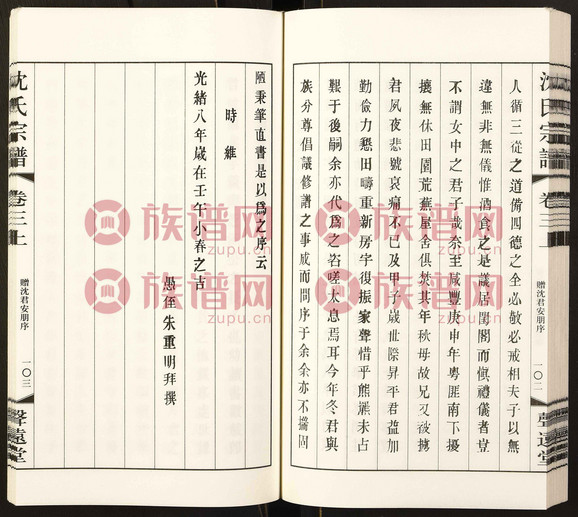 沈氏宗譜
卷三上
贈沈君安朋序
一〇二
聲遠堂
人循三從之道備四德之全必敬必戒相夫子以無
違無非無儀惟酒食之是議居閨閣而慎禮儀者豈
不謂女中之君子哉奈至咸豐庚申年粵匪南下擾
攘無休田園荒蕪屋舍俱焚其年秋母故兄又被擄
君夙夜悲號哀痛不已及甲子歲世際昇平君益加
勤儉力懇田疇重新房宇復振家聲惜乎熊羆未占
艱于後嗣余亦代為之咨嗟太息焉耳今年冬君與
族分尊倡議修譜之事咸而問序于余余亦不揣固
陋秉筆直書是以為之序云
時維
光緒八年歲在壬午小春之吉
愚侄朱重明拜撰
沈氏宗譜
卷三上
贈沈君安朋序
一〇三
聲遠堂
族谱网
zupu.cn
族谱网
zupu.cn
族谱网
zupu.cn
族谱网
zupu.cn